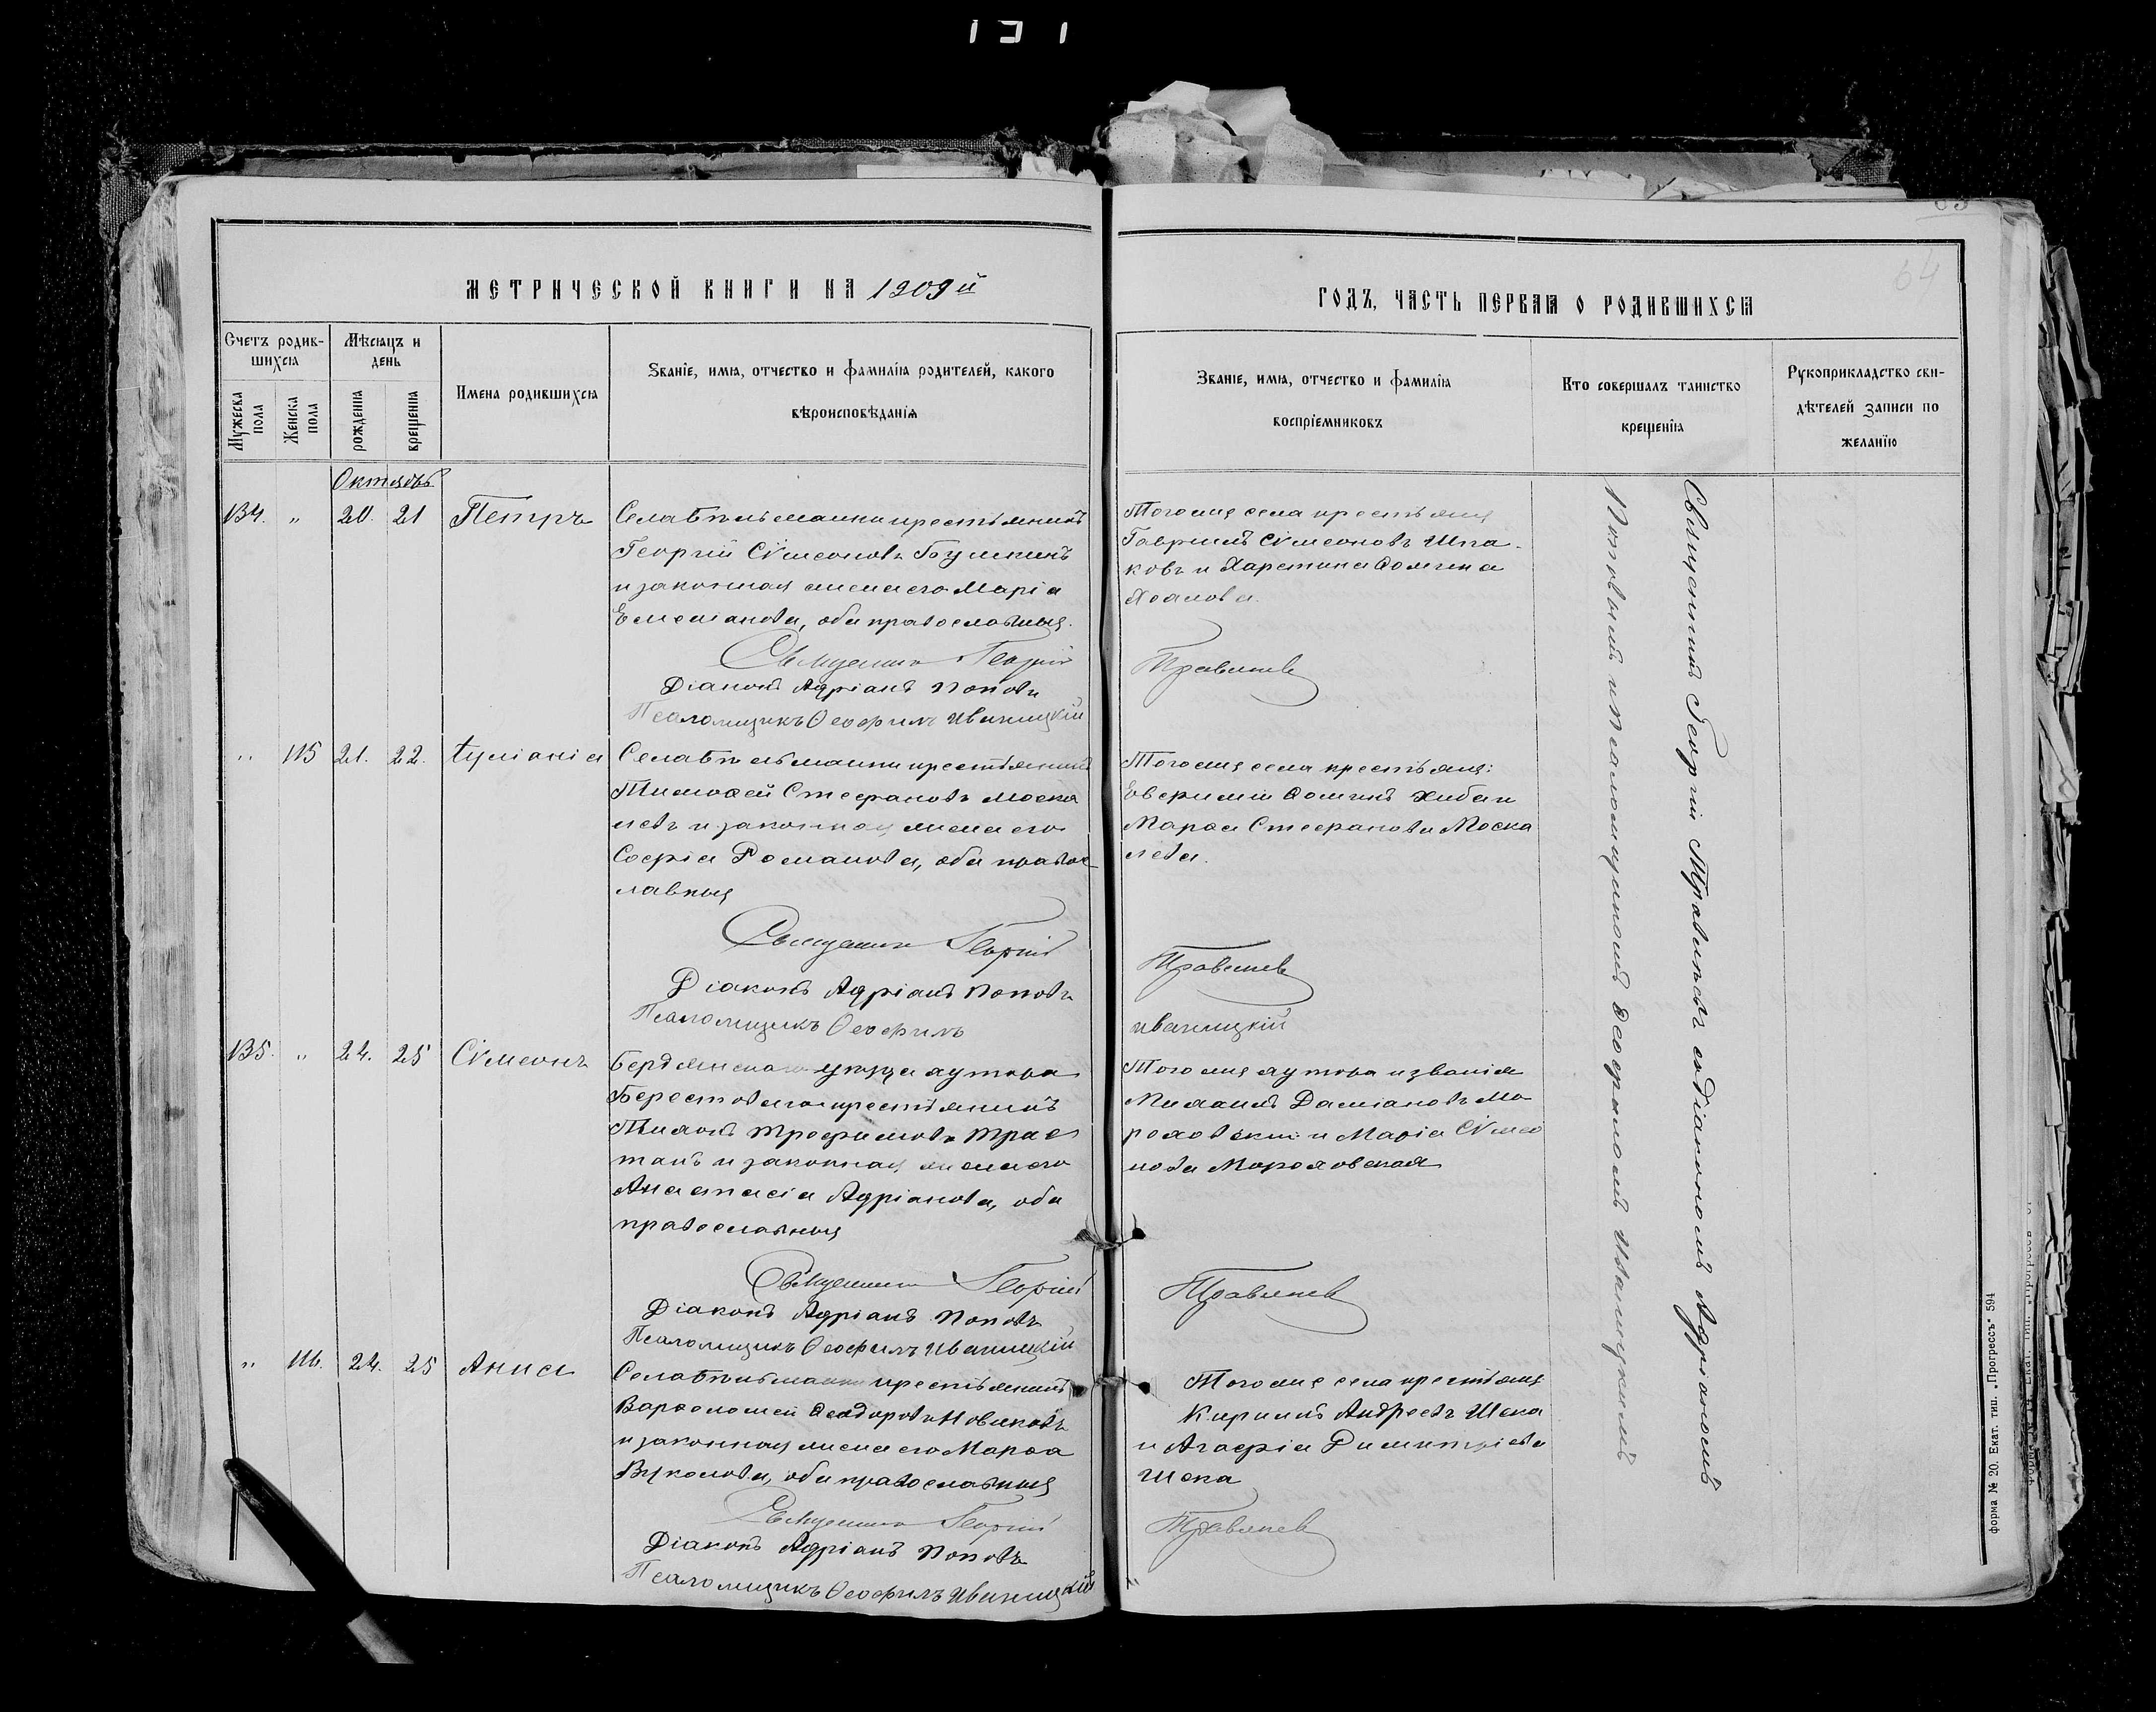 131
МЕТРИЧЕСКОЙ КНИГИ НА 1909й
ГОДЪ, ЧАСТЬ ПЕРВАЯ О РОДИВШИХСЯ
64
Счетъ родившихся
Мужеска пола
Женска пола
Мѣсяцъ и день
рожденія
крещенія
Имена родившихся
Званіе, имя, отчество и фамилія родителей, какого
вѣроисповѣданія
Званіе, имя, отчество и фамилія
воспріемниковъ
Кто совершалъ таинство
крещенія
Рукоприкладство сви-
дѣтелей записи по
желанію
Октябрь
134. " 20. 21 Петръ
Села Бѣльманки крестьянинъ
Георгій Сѵмеоновъ
и законная жена его Марія
Емеліанова, оба православныя.
Священникъ Георгій
Діаконъ Адріанъ Поповъ
Псаломщикъ Ѳеофилъ Иваницкій
Того же села крестьяне
Гавріилъ Сѵмеоновъ Шпа-
ковъ и Харитина Ѳомина
Травлевъ
" 115 21. 22.
Села Бѣльманки крестьянинъ
Тимоѳей Стефановъ Моска
левъ и законная жена его
Софія Романова, оба правос
лавныя
Священникъ Георгій
Діаконъ Адріанъ Поповъ
Псаломщикъ Ѳеофилъ
Того же села крестьяне:
Евфимій Ѳоминъ Хиба и
Марѳа Стефанова Моска
лева.
Травлевъ
Иваницкій
135. " 24. 25 Сѵмеонъ
Бердянскаго уѣзда хутора
Берестоваго крестьянинъ
Тихонъ Трофимовъ Трас
танъ и законная жена его
Анастасія Адріанова, оба
православныя
Священникъ Георгій
Діаконъ Адріанъ Поповъ
Псаломщикъ Ѳеофилъ Иваницкій
Того же хутора и званія
Михаилъ Даміановъ Мо-
роховскій и Марія Сѵмео
нова Мороховская
Травлевъ
" 116. 24. 25 Анна
Села Бѣльманки крестьянинъ
Варѳоломей Ѳеодоровъ Новиковъ
и законная жена его Марѳа
Вуколова, оба православныя
Священникъ Георгій
Діаконъ Адріанъ Поповъ
Псаломщикъ Ѳеофилъ Иваницкій
Того же села крестьяне
Кириллъ Андреевъ Шека
и Агафія Димитріева
Шека
Травлевъ
Священникъ Георгій Травлевъ съ діакономъ Адріаномъ
Поповымъ и псаломщикомъ Ѳеофиломъ Иваницкимъ
форма № 20. Екат. тип. „Прогрессъ" 594